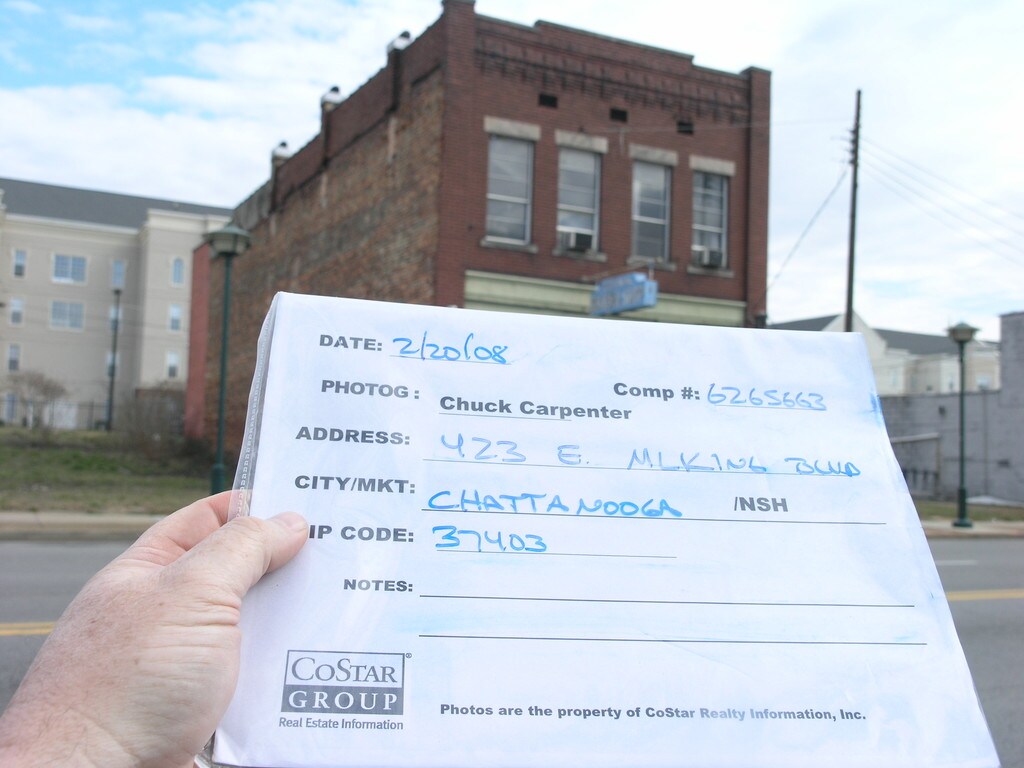 DATE: 2/20/08
PHOTOG: Chuck Carpenter Comp #: 6265663
ADDRESS: 423 E. MLKING BLVD
CITY/MKT: CHATTANOOGA /NSH
IP CODE: 37403
NOTES:
COSTAR®
GROUP
Real Estate Information
Photos are the property of CoStar Realty Information, Inc.